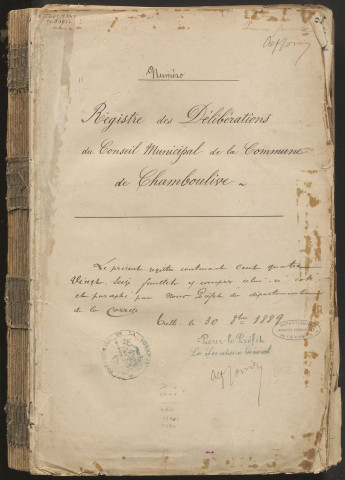 Numéro
Registre des Délibérations
du Conseil Municipal de la Commune
de Chamboulive
Le présent registre contenant Cent quatre
Vingt Six feuillets y compris celui-ci coté
et paraphé par Nous Préfet du département
de la Corrèze
Tulle, le 30 8bre 1889
Pour le Préfet
Le Secrétaire Général